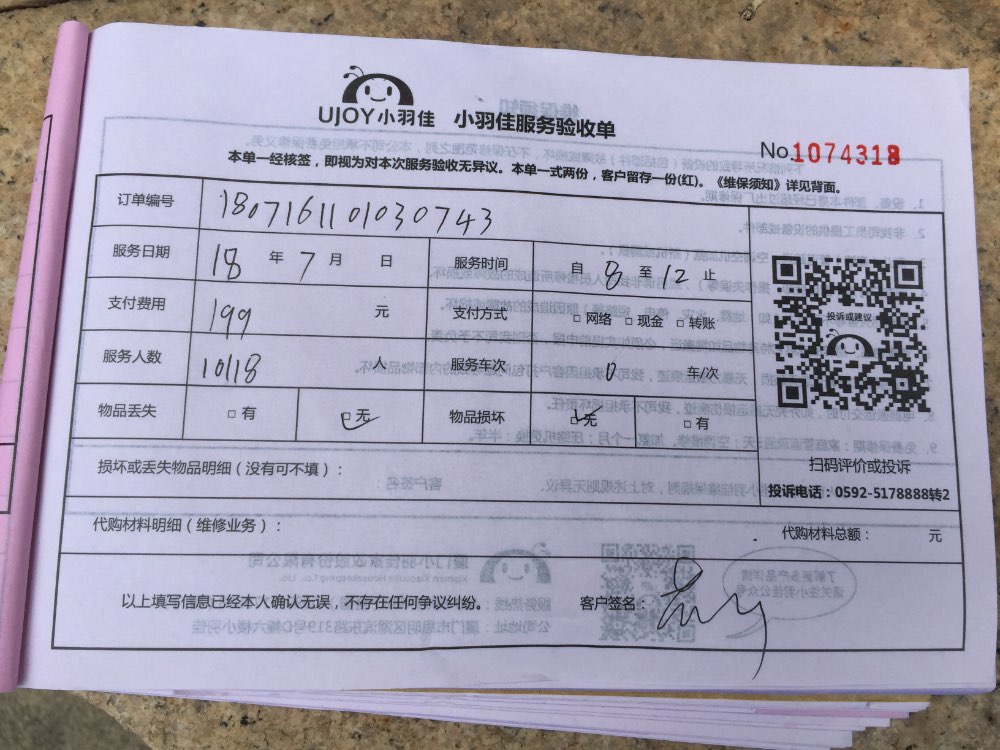 UJOY小羽佳 小羽佳服务验收单
No.1074318
本单一经核签，即视为对本次服务验收无异议。本单一式两份，客户留存一份(红)。《维保须知》详见背面。
订单编号 180716110103 0743
服务日期 18 年 7 月 日 服务时间 自 8 至 12 止
支付费用 199 元 支付方式 □网络 □现金 □转账
服务人数 10118 人 服务车次 0 车/次
物品丢失 □有 □无 物品损坏 □无 □有
投诉或建议
扫码评价或投诉
投诉电话：0592-5178888转2
损坏或丢失物品明细（没有可不填）：
代购材料明细（维修业务）： 代购材料总额： 元
以上填写信息已经本人确认无误，不存在任何争议纠纷。 客户签名：